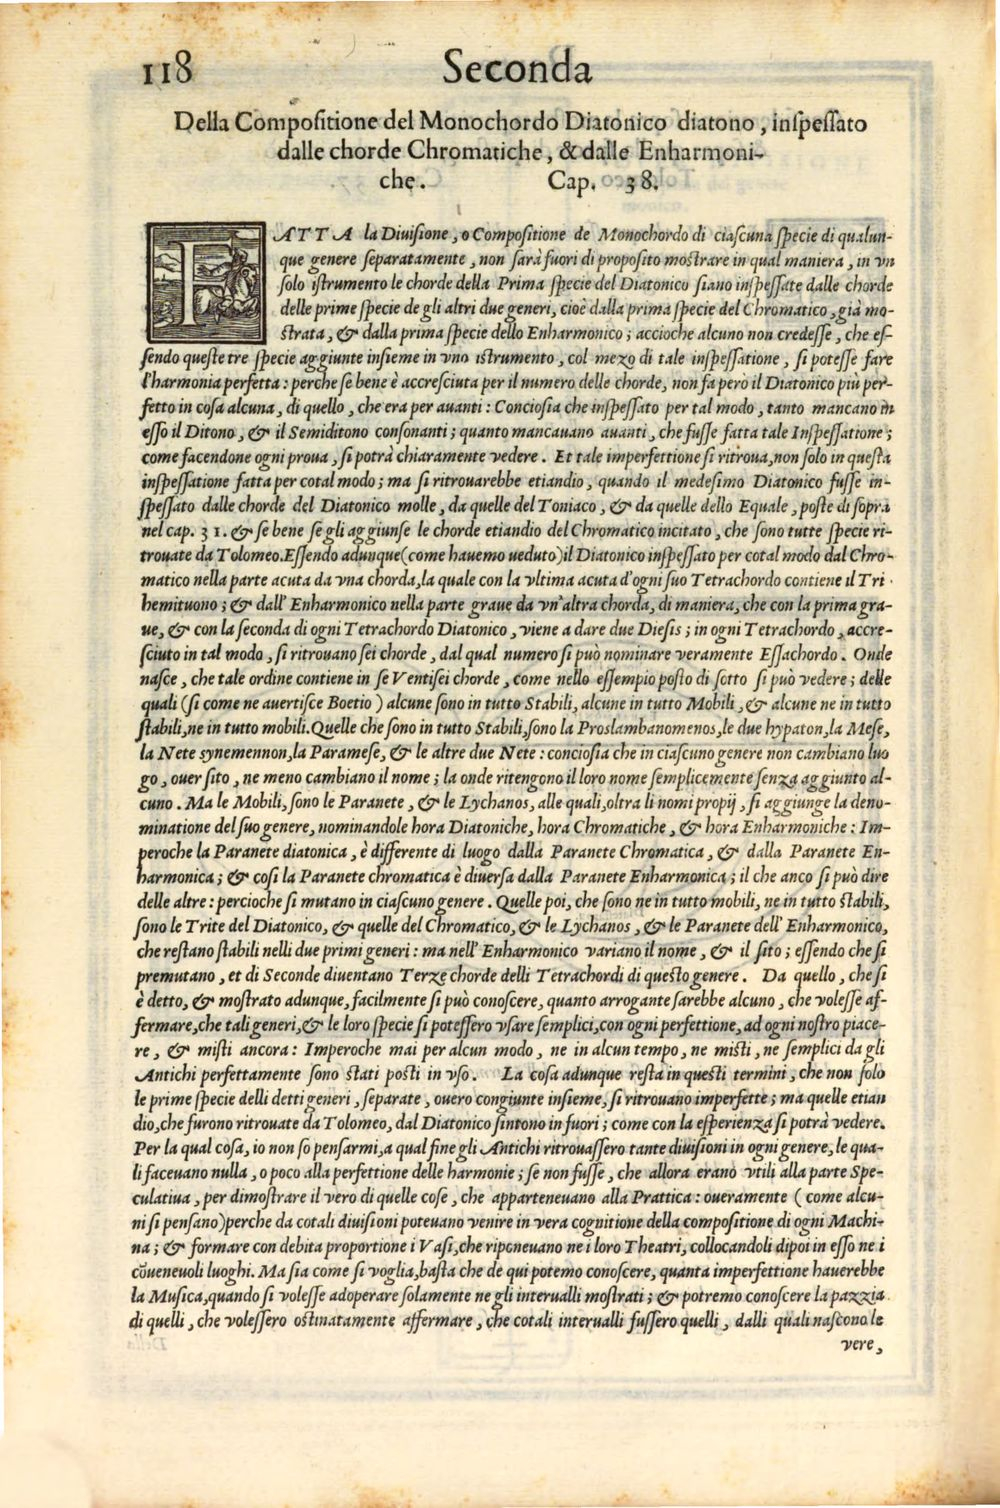 118 Seconda
Della Compoſitione del Monochordo Diatonico diatono, inſpeſſato
dalle chorde Chromatiche, & dalle Enharmoni-
che. Cap. 38.
FATTA la Diuiſione, o Compoſitione de Monochordo di ciaſcuna ſpecie di qualun-
que genere ſeparatamente, non ſarà fuori di propoſito moſtrare in qual maniera, in vn
ſolo iſtrumento le chorde della Prima ſpecie del Diatonico ſiano inſpeſſate dalle chorde
delle prime ſpecie de gli altri due generi, cioè dalla prima ſpecie del Chromatico, già mo-
ſtrata, & dalla prima ſpecie dello Enharmonico; accioche alcuno non credeſſe, che eſ-
ſendo queſte tre ſpecie aggiunte inſieme in vno iſtrumento, col mezo di tale inſpeſſatione, ſi poteſſe fare
l'harmonia perfetta: perche ſe bene è accreſciuta per il numero delle chorde, non fa però il Diatonico più per-
fetto in coſa alcuna, di quello, che era per auanti: Concioſia che inſpeſſato per tal modo, tanto mancano in
eſſo il Ditono, & il Semiditono conſonanti; quanto mancauano auanti, che fuſſe fatta tale Inſpeſſatione;
come facendone ogni proua, ſi potrà chiaramente vedere. Et tale imperfettione ſi ritroua, non ſolo in queſta
inſpeſſatione fatta per cotal modo; ma ſi ritrouarebbe etiandio, quando il medeſimo Diatonico fuſſe in-
ſpeſſato dalle chorde del Diatonico molle, da quelle del Toniaco, & da quelle dello Equale, poſte di ſopra
nel cap. 31. & ſe bene ſe gli aggiunſe le chorde etiandio del Chromatico incitato, che ſono tutte ſpecie ri-
trouate da Tolomeo. Eſſendo adunque (come hauemo veduto) il Diatonico inſpeſſato per cotal modo dal Chro-
matico nella parte acuta da vna chorda, la quale con la vltima acuta d'ogni ſuo Tetrachordo contiene il Tri
hemituono; & dall' Enharmonico nella parte graue da vn'altra chorda, di maniera, che con la prima gra-
ue, & con la ſeconda di ogni Tetrachordo Diatonico, viene a dare due Dieſis; in ogni Tetrachordo, accre-
ſciuto in tal modo, ſi ritrouano ſei chorde, dal qual numero ſi può nominare veramente Eſſachordo. Onde
naſce, che tale ordine contiene in ſe Ventiſei chorde, come nello eſſempio poſto di ſotto ſi può vedere; delle
quali (ſi come ne auertiſce Boetio) alcune ſono in tutto Stabili, alcune in tutto Mobili, & alcune ne in tutto
ſtabili, ne in tutto mobili. Quelle che ſono in tutto Stabili, ſono la Proslambanomenos, le due hypaton, la Meſe,
la Nete synemennon, la Parameſe, & le altre due Nete: concioſia che in ciaſcuno genere non cambiano luo
go, ouer ſito, ne meno cambiano il nome; la onde ritengono il loro nome ſemplicemente ſenza aggiunto al-
cuno. Ma le Mobili, ſono le Paranete, & le Lychanos, alle quali, oltra li nomi propij, ſi aggiunge la deno-
minatione del ſuo genere, nominandole hora Diatoniche, hora Chromatiche, & hora Enharmoniche: Im-
peroche la Paranete diatonica, è differente di luogo dalla Paranete Chromatica, & dalla Paranete En-
harmonica; & coſi la Paranete chromatica è diuerſa dalla Paranete Enharmonica; il che anco ſi può dire
delle altre: percioche ſi mutano in ciaſcuno genere. Quelle poi, che ſono ne in tutto mobili, ne in tutto ſtabili,
ſono le Trite del Diatonico, & quelle del Chromatico, & le Lychanos, & le Paranete dell' Enharmonico,
che reſtano ſtabili nelli due primi generi: ma nell' Enharmonico variano il nome, & il ſito; eſſendo che ſi
premutano, et di Seconde diuentano Terze chorde delli Tetrachordi di queſto genere. Da quello, che ſi
è detto, & moſtrato adunque, facilmente ſi può conoſcere, quanto arrogante ſarebbe alcuno, che voleſſe af-
fermare, che tali generi, & le loro ſpecie ſi poteſſero vſare ſemplici, con ogni perfettione, ad ogni noſtro piace-
re, & miſti ancora: Imperoche mai per alcun modo, ne in alcun tempo, ne miſti, ne ſemplici da gli
Antichi perfettamente ſono ſtati poſti in vſo. La coſa adunque reſta in queſti termini, che non ſolo
le prime ſpecie delli detti generi, ſeparate, ouero congiunte inſieme, ſi ritrouano imperfette; ma quelle etian
dio, che furono ritrouate da Tolomeo, dal Diatonico ſintono in fuori; come con la eſperienza ſi potrà vedere.
Per la qual coſa, io non ſo penſarmi, a qual fine gli Antichi ritrouaſſero tante diuiſioni in ogni genere, le qua-
li faceuano nulla, o poco alla perfettione delle harmonie; ſe non fuſſe, che allora erano vtili alla parte Spe-
culatiua, per dimoſtrare il vero di quelle coſe, che apparteneuano alla Prattica: oueramente (come alcu-
ni ſi penſano) perche da cotali diuiſioni poteuano venire in vera cognitione della compoſitione di ogni Machi-
na; & formare con debita proportione i Vaſi, che riponeuano ne i loro Theatri, collocandoli dipoi in eſſo ne i
cōueneuoli luoghi. Ma ſia come ſi voglia, baſta che de qui potemo conoſcere, quanta imperfettione hauerebbe
la Muſica, quando ſi voleſſe adoperare ſolamente ne gli interualli moſtrati; & potremo conoſcere la pazzia
di quelli, che voleſſero oſtinatamente affermare, che cotali interualli fuſſero quelli, dalli quali naſcono le
vere,